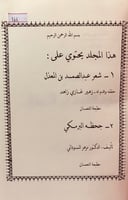 بسم الله الرحمن الرحيم
هذا المجلد يحتوي على :
١ - شعر عبد الصمد بن المعذل
حققه وقدم له : زهير غازي زاهد
مطبعة النعمان
٢ - جحظة البرمكي
تأليف : الدكتور مزهر السوداني
مطبعة النعمان